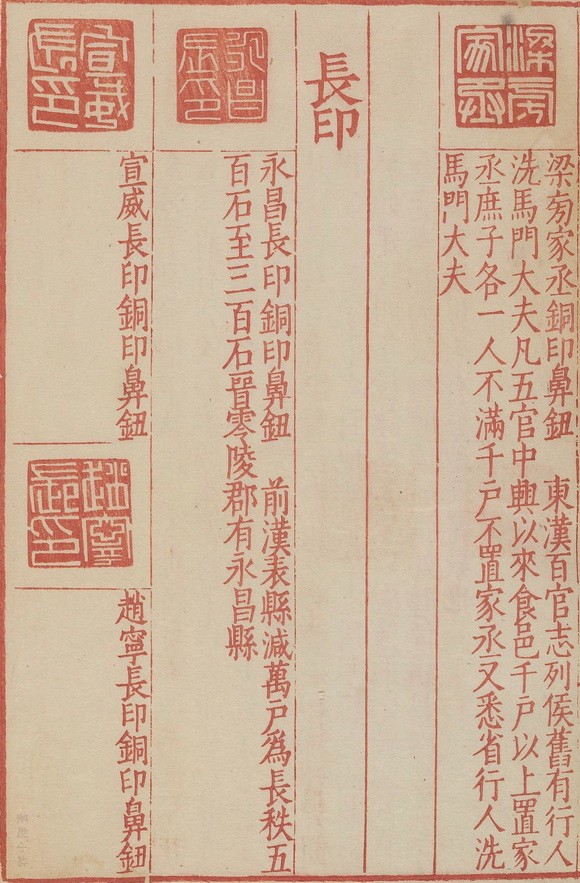 梁家丞
梁家丞銅印鼻鈕　東漢百官志列侯舊有行人
洗馬門大夫凡五官中興以來食邑千戶以上置家
丞庶子各一人不滿千戶不置家丞又悉省行人洗
馬門大夫
長印
永昌長印
永昌長印銅印鼻鈕　前漢表縣減萬戶爲長秩五
百石至三百石晉零陵郡有永昌縣
宣威長印
宣威長印銅印鼻鈕
趙寧長印
趙寧長印銅印鼻鈕